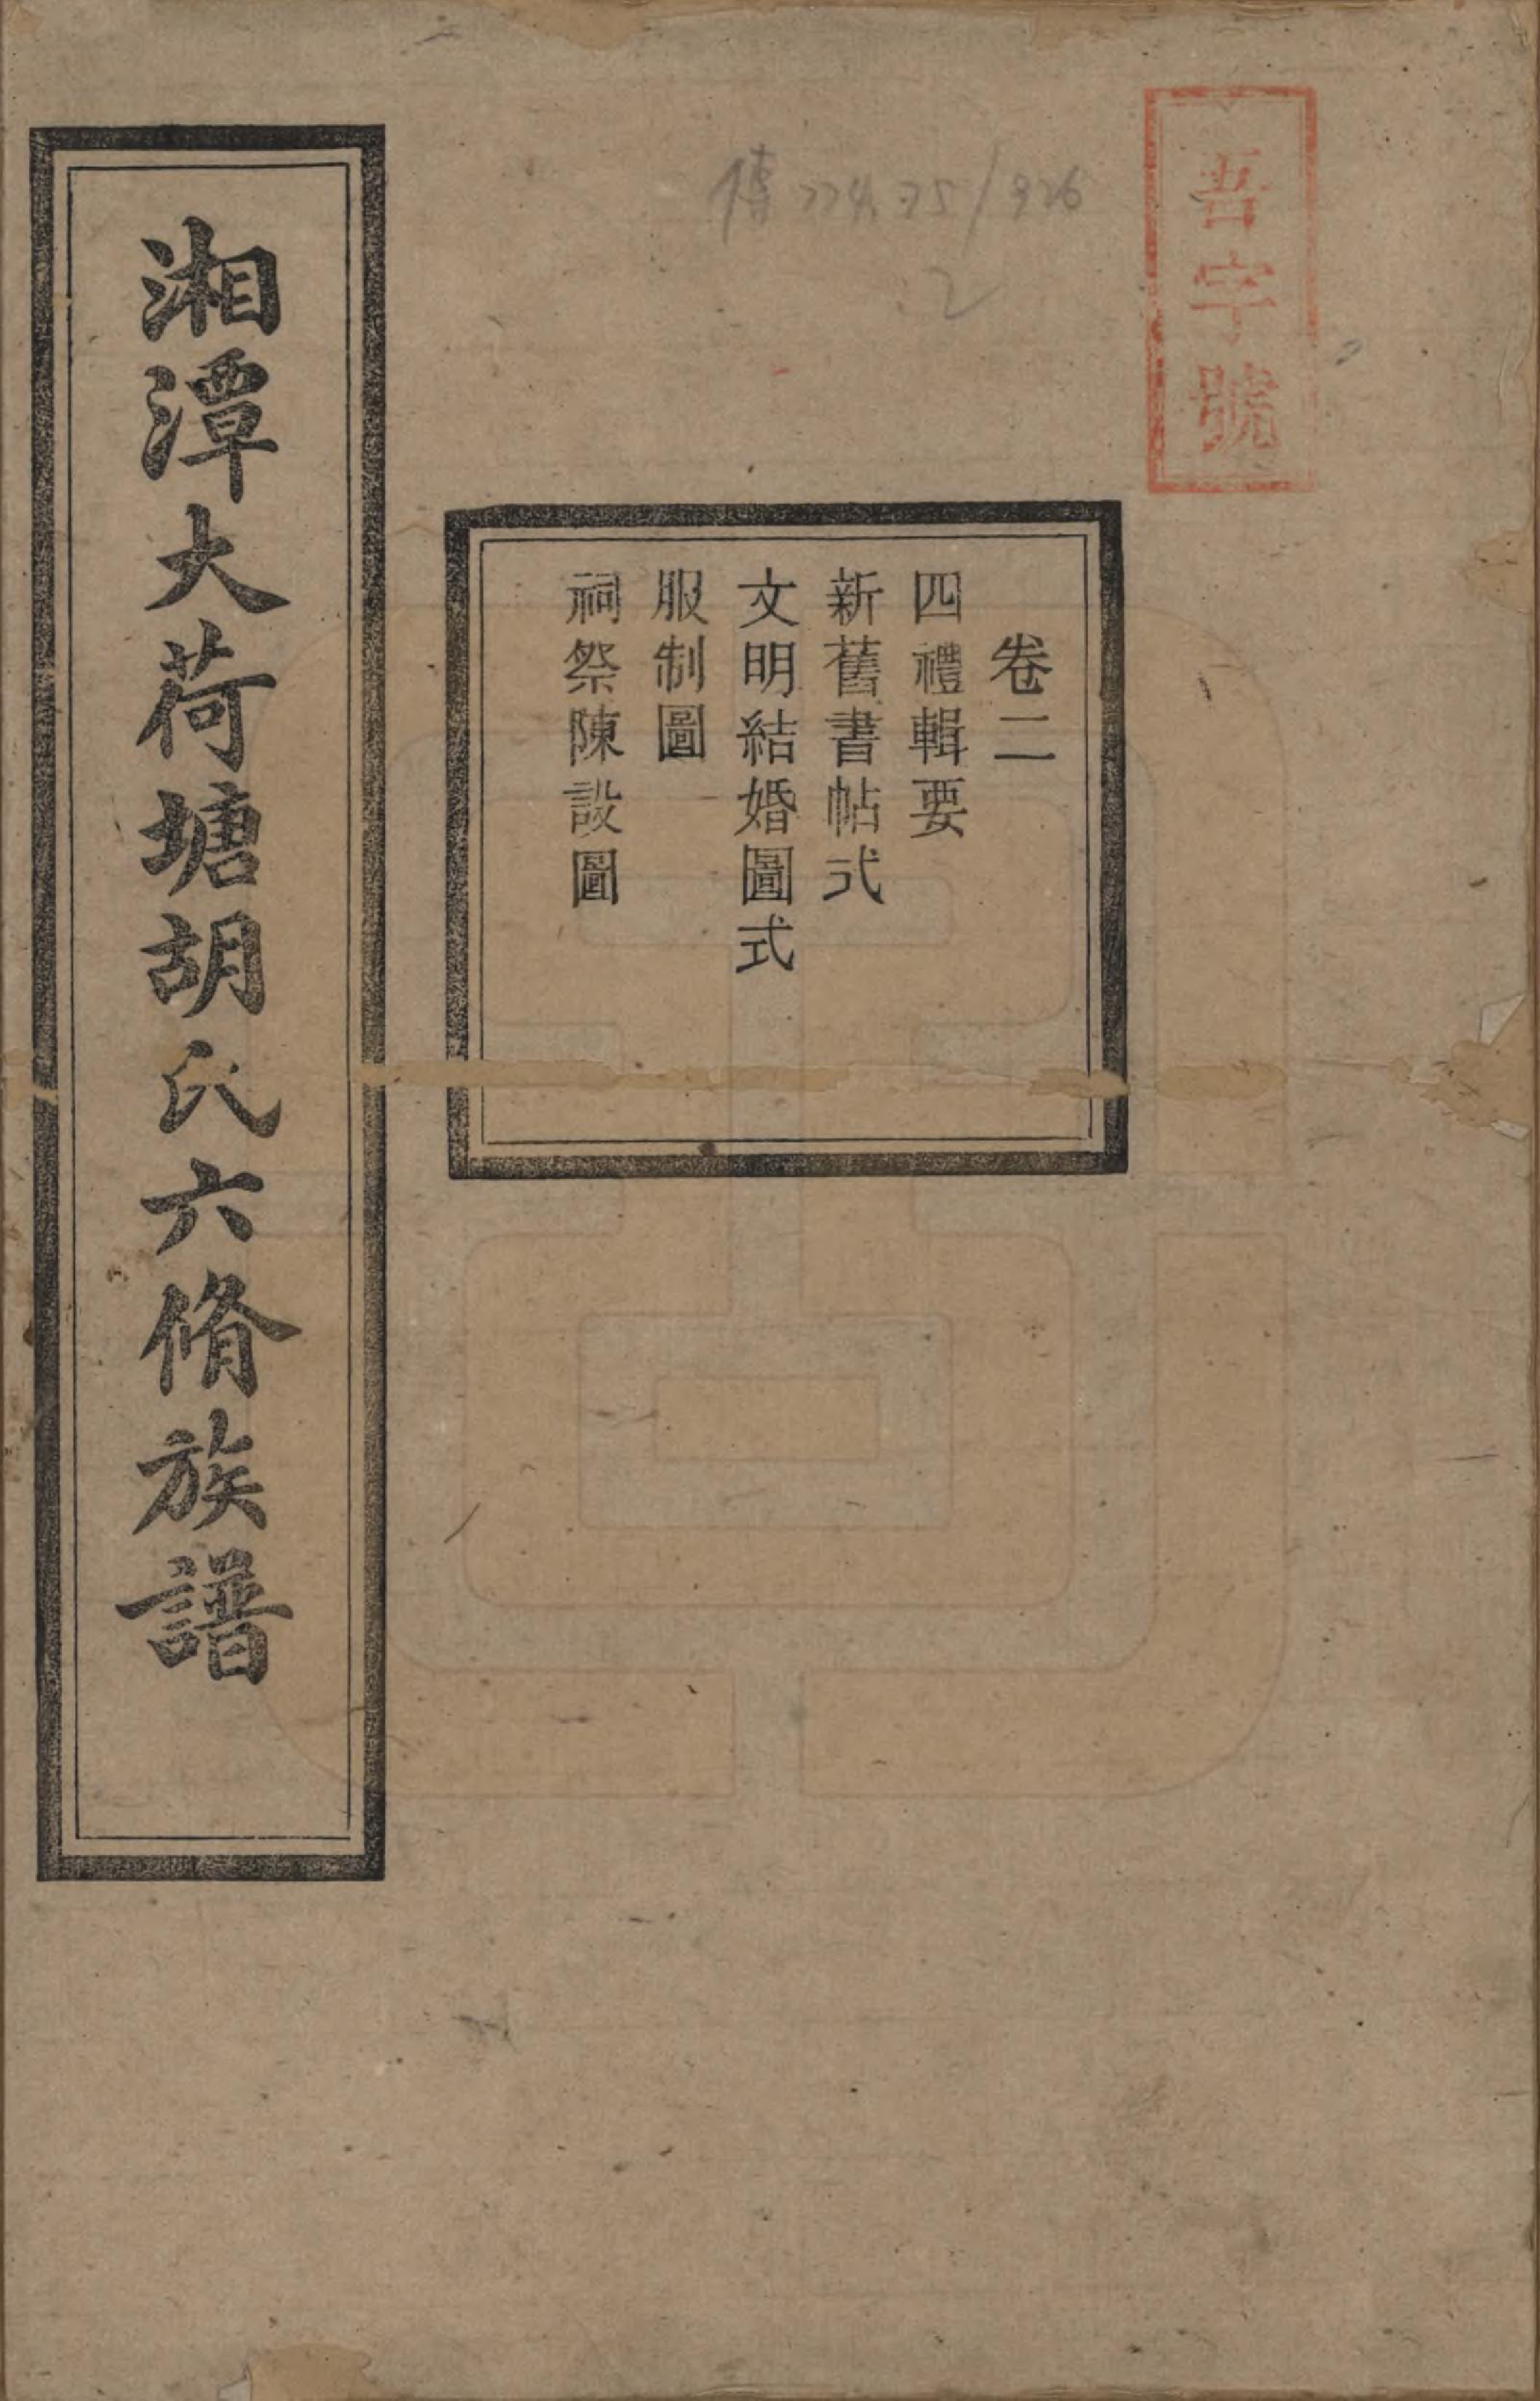 吾字號
傳 774.75/926
2
卷二
四禮輯要
新舊書帖式
文明結婚圖式
服制圖
祠祭陳設圖
湘潭大荷塘胡氏六脩族譜